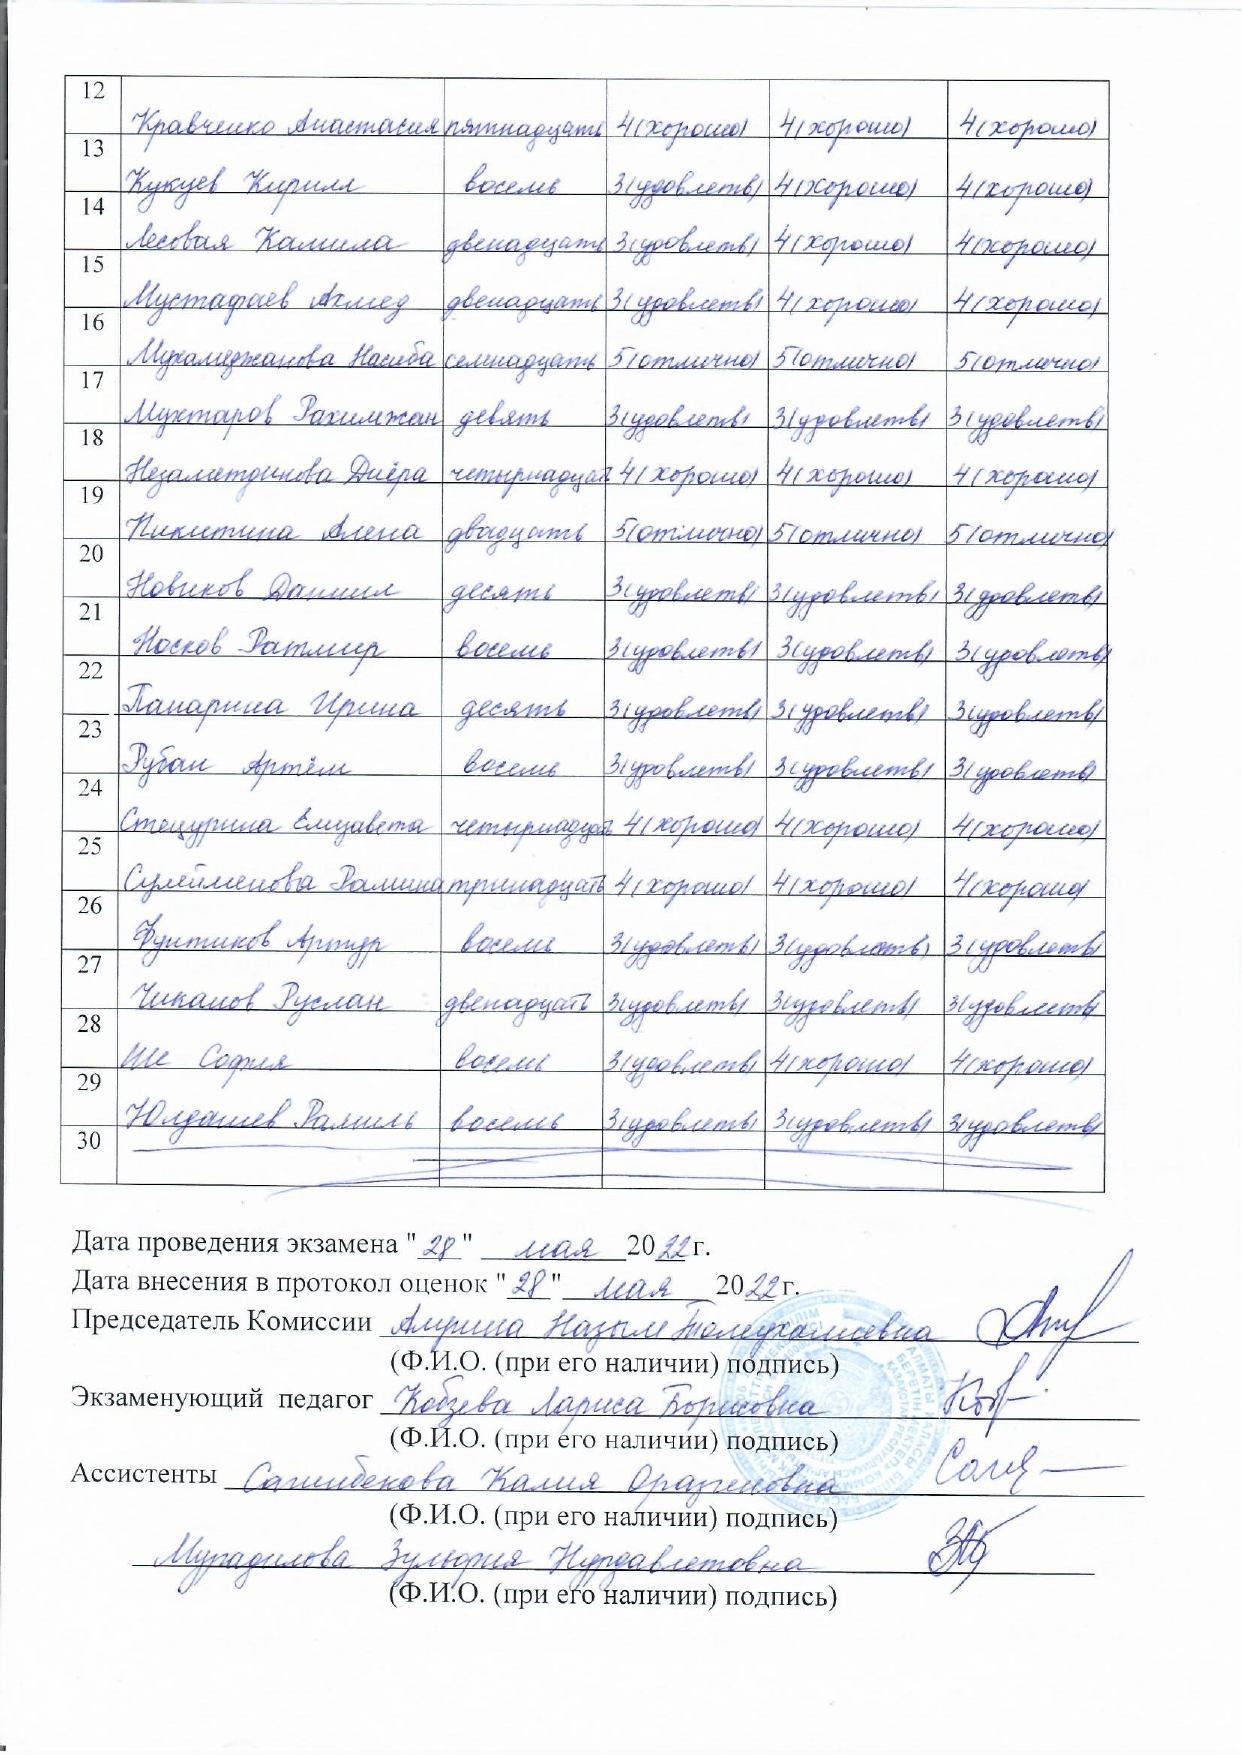 12 Кравченко Анастасия пятнадцать 4(хорошо) 4(хорошо) 4(хорошо)
13 Кукуев Кирилл восемь 3(удовлетв) 4(хорошо) 4(хорошо)
14 Лесовая Камила двенадцать 3(удовлетв) 4(хорошо) 4(хорошо)
15 Мустафаев Ахмед двенадцать 3(удовлетв) 4(хорошо) 4(хорошо)
16 Мухамеджанова Насиба семнадцать 5(отлично) 5(отлично) 5(отлично)
17 Мухтаров Рахимжан девять 3(удовлетв) 3(удовлетв) 3(удовлетв)
18 Незаметдинова Диёра четырнадцат 4(хорошо) 4(хорошо) 4(хорошо)
19 Никитина Алена двадцать 5(отлично) 5(отлично) 5(отлично)
20 Новиков Даниил десять 3(удовлетв) 3(удовлетв) 3(удовлетв)
21 Носков Ратмир восемь 3(удовлетв) 3(удовлетв) 3(удовлетв)
22 Панарина Ирина десять 3(удовлетв) 3(удовлетв) 3(удовлетв)
23 Рубан Артём восемь 3(удовлетв) 3(удовлетв) 3(удовлетв)
24 Стецурина Елизавета четырнадцать 4(хорошо) 4(хорошо) 4(хорошо)
25 Сулейменова Рамина тринадцать 4(хорошо) 4(хорошо) 4(хорошо)
26 Фунтиков Артур восемь 3(удовлетв) 3(удовлетв) 3(удовлетв)
27 Чикалов Руслан двенадцать 3(удовлетв) 3(удовлетв) 3(удовлетв)
28 Ше София восемь 3(удовлетв) 4(хорошо) 4(хорошо)
29 Юлдашев Рамиль восемь 3(удовлетв) 3(удовлетв) 3(удовлетв)
30
Дата проведения экзамена "28" мая 2022 г.
Дата внесения в протокол оценок "28" мая 2022 г.
Председатель Комиссии Амрина Назым
(Ф.И.О. (при его наличии) подпись)
Экзаменующий педагог Кобзева Лариса Борисовна
(Ф.И.О. (при его наличии) подпись)
Ассистенты Сагинбекова Калия Оразгеновна
(Ф.И.О. (при его наличии) подпись)
Мурадилова Зульфия Нурдавлетовна
(Ф.И.О. (при его наличии) подпись)